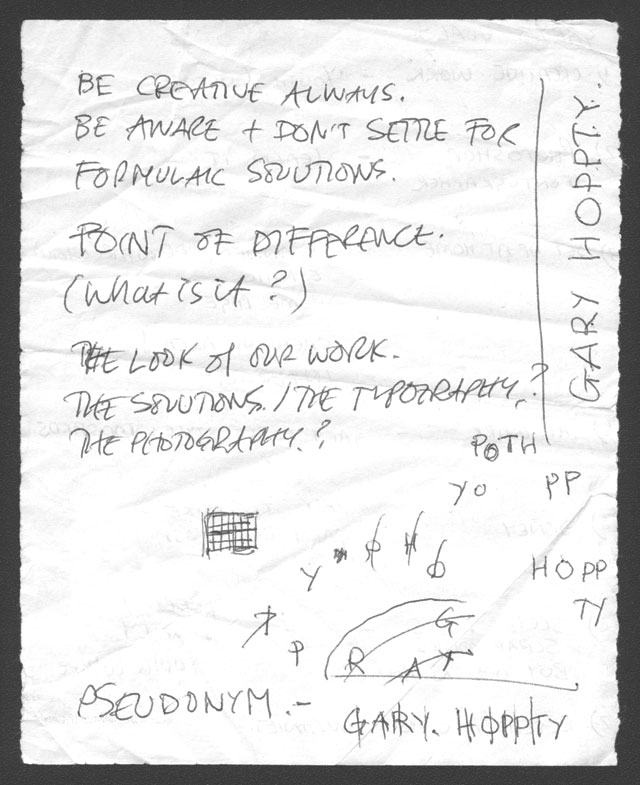 BE CREATIVE ALWAYS.
BE AWARE + DON'T SETTLE FOR
FORMULAIC SOLUTIONS.
POINT OF DIFFERENCE.
(What is it?)
THE LOOK OF OUR WORK.
THE SOLUTIONS. / THE TYPOGRAPHY.?
THE PHOTOGRAPHY.?
GARY HOPPTY.
POTH
YO PP
Y O H O
HOPP
TY
T P
G
R A Y
PSEUDONYM.-
GARY. HOPPTY